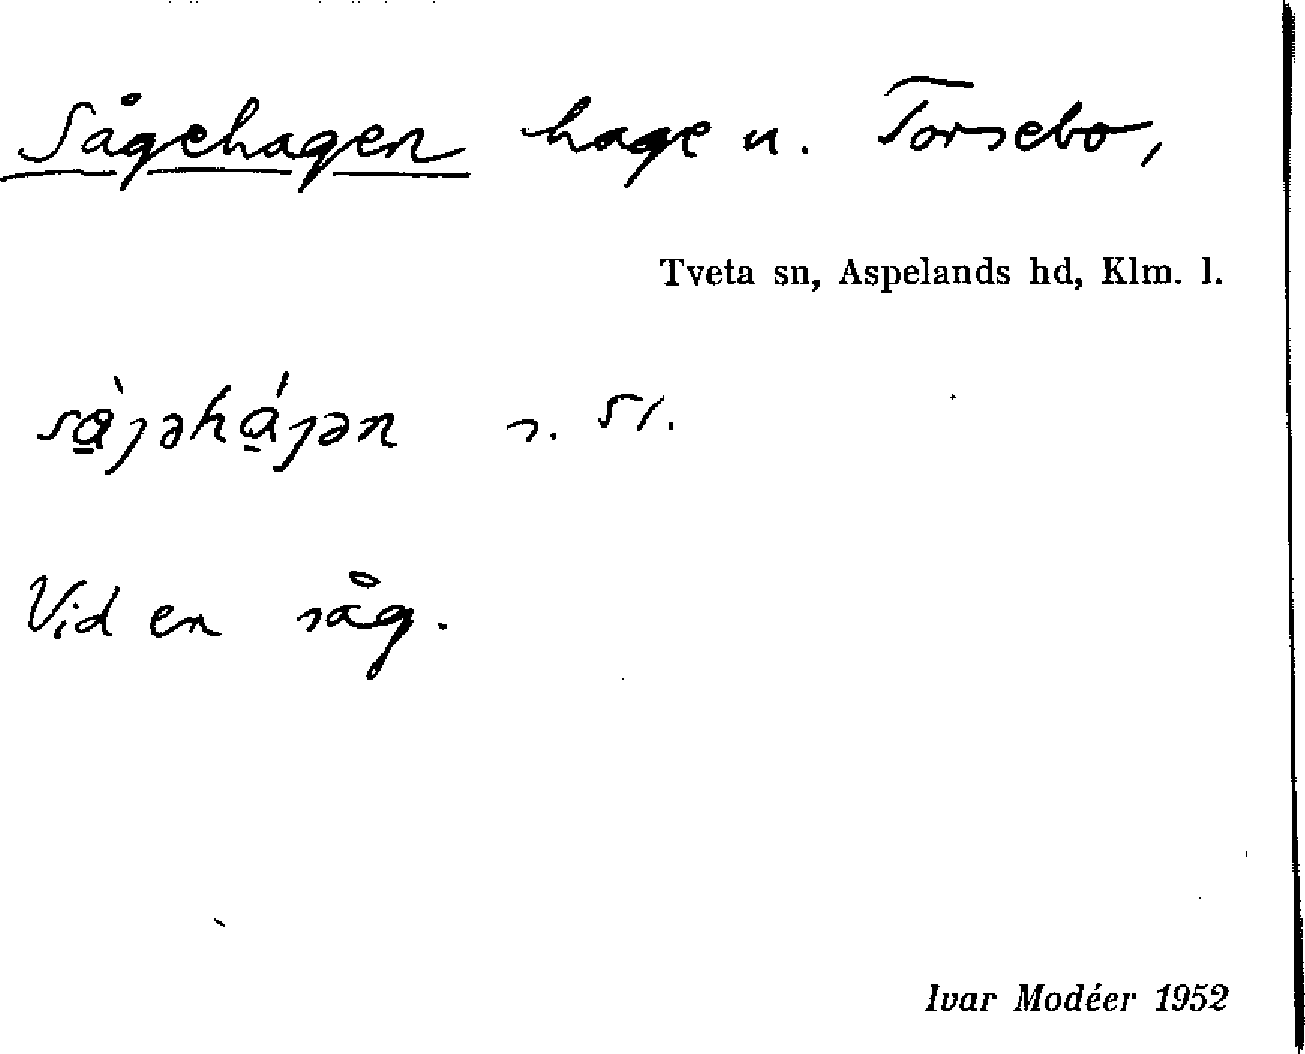 Sågehagen hage u. Torsebo,
Tveta sn, Aspelands hd, Klm. l.
sà̲jəhá̲jən s. 51.
Vid en såg.
Ivar Modéer 1952